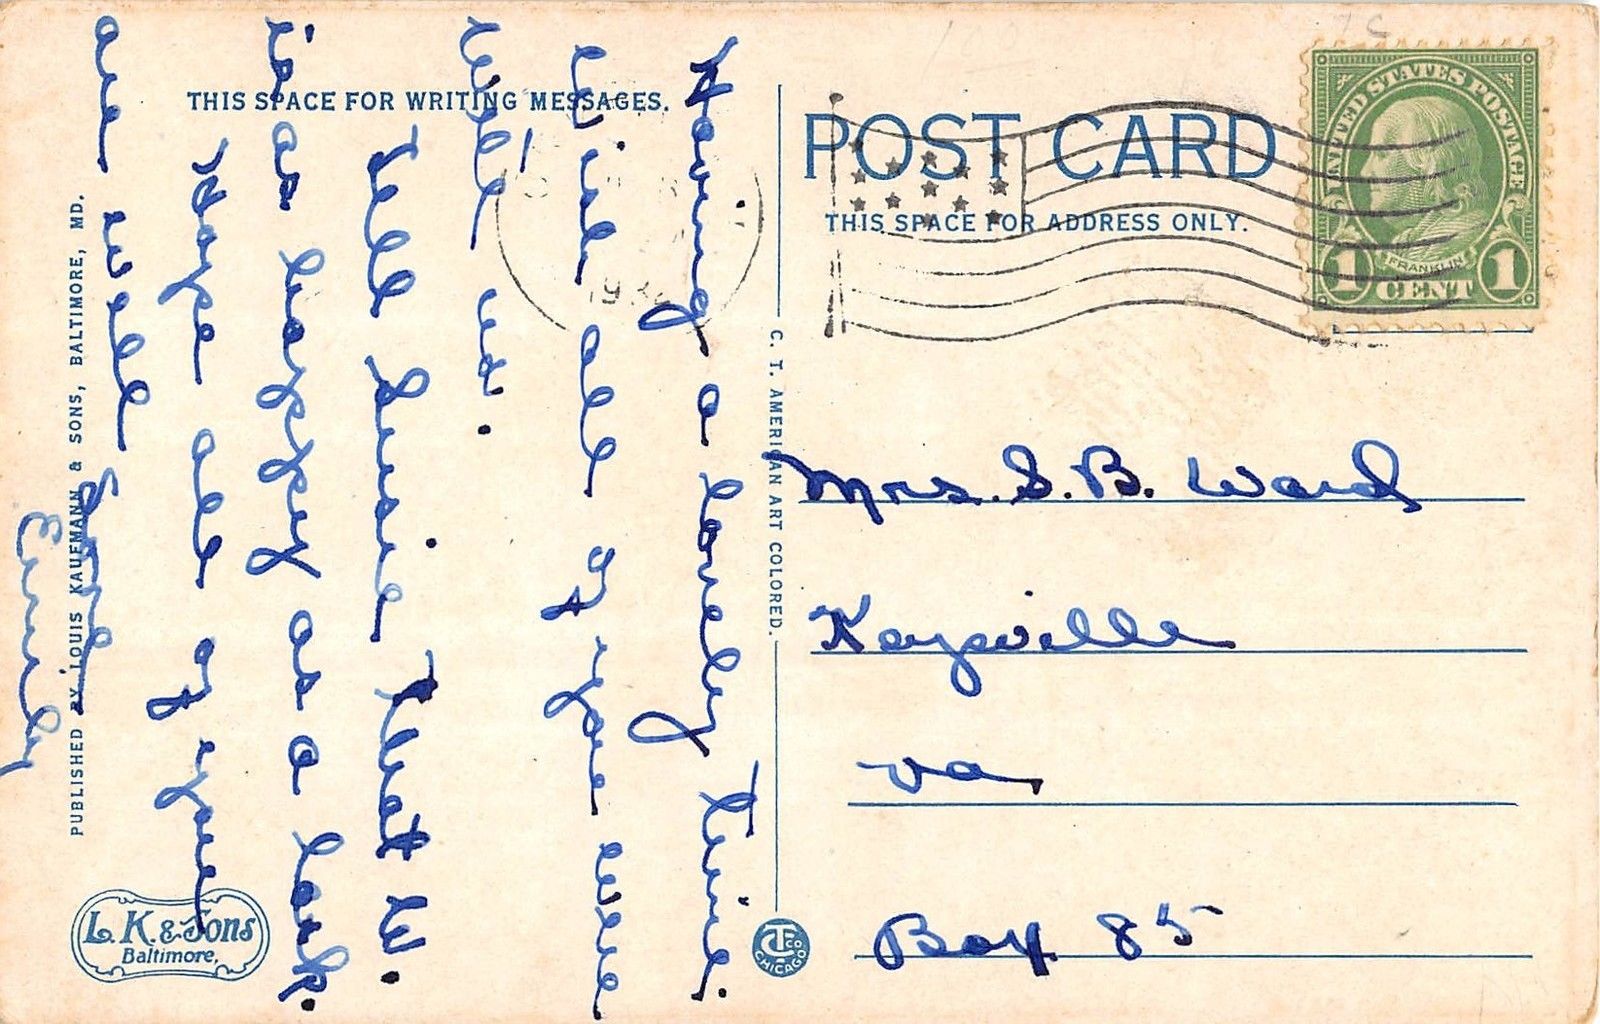 THIS SPACE FOR WRITING MESSAGES.
POST CARD
THIS SPACE FOR ADDRESS ONLY.
UNITED STATES POSTAGE
FRANKLIN
1 CENT 1
Having a lovely time.
Wish all of you were
with us.
Tell Susie that W.
is as happy as a lark.
Hope all of you
are well
Love
Emily
Mrs. S. B. Ward
Keysville
Va
Box 85
C. T. AMERICAN ART COLORED.
PUBLISHED BY LOUIS KAUFMAN & SONS, BALTIMORE, MD.
L. K. & Sons
Baltimore,
CT CO
CHICAGO